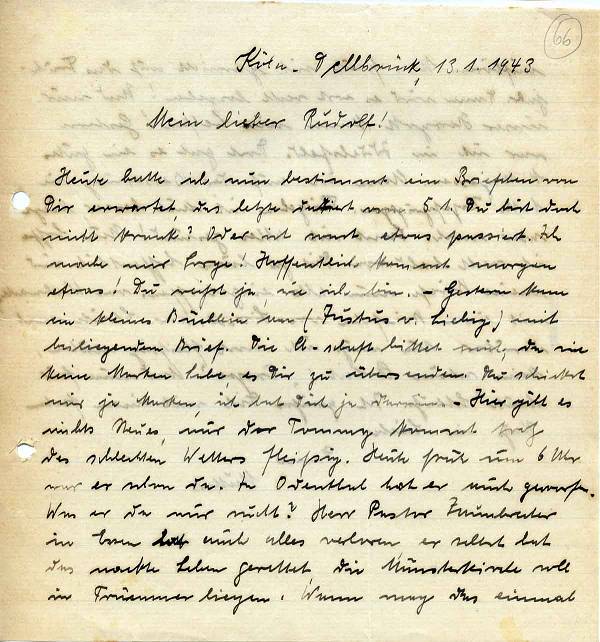 66
Köln-Dellbrück, 13.1.1943
Mein lieber Rudolf!
Heute hatte ich nun bestimmt ein Briefchen von
Dir erwartet, das letzte datiert vom 5.1. Du bist doch
nicht krank? Oder ist sonst etwas passiert. Ich
mache mir Sorge! Hoffentlich kommt morgen
etwas! Du weißt ja, wie ich bin. - Gestern kam
ein kleines Büchlein an (Justus v. Liebig) mit
beiliegenden Brief. Die A-schaft bittet mich, da sie
keine Marken habe, es Dir zu übersenden. Du schickst
mir ja Marken, ich bat dich ja darum. - Hier gibt es
nichts Neues, nur der Tommy kommt trotz
des schlechten Wetters fleißig. Heute früh um 6 Uhr
war er schon da. In Odenthal hat er auch geworfen.
Was er da nur sucht? Herr Pastor
in Essen hat auch alles verloren er selbst hat
das nackte Leben gerettet die Münsterkirche soll
in Trümmer liegen. Wann mag das einmal